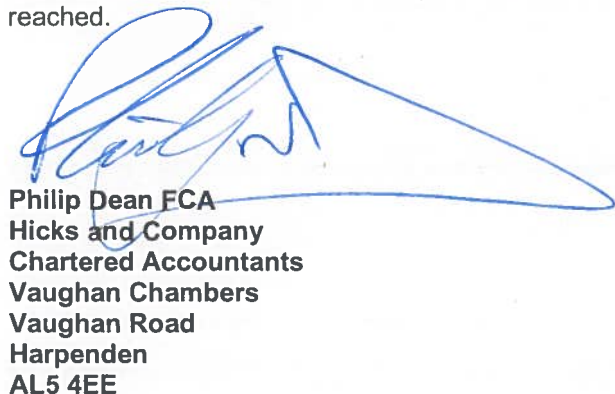 reached.
Philip Dean FCA
Hicks and Company
Chartered Accountants
Vaughan Chambers
Vaughan Road
Harpenden
AL5 4EE